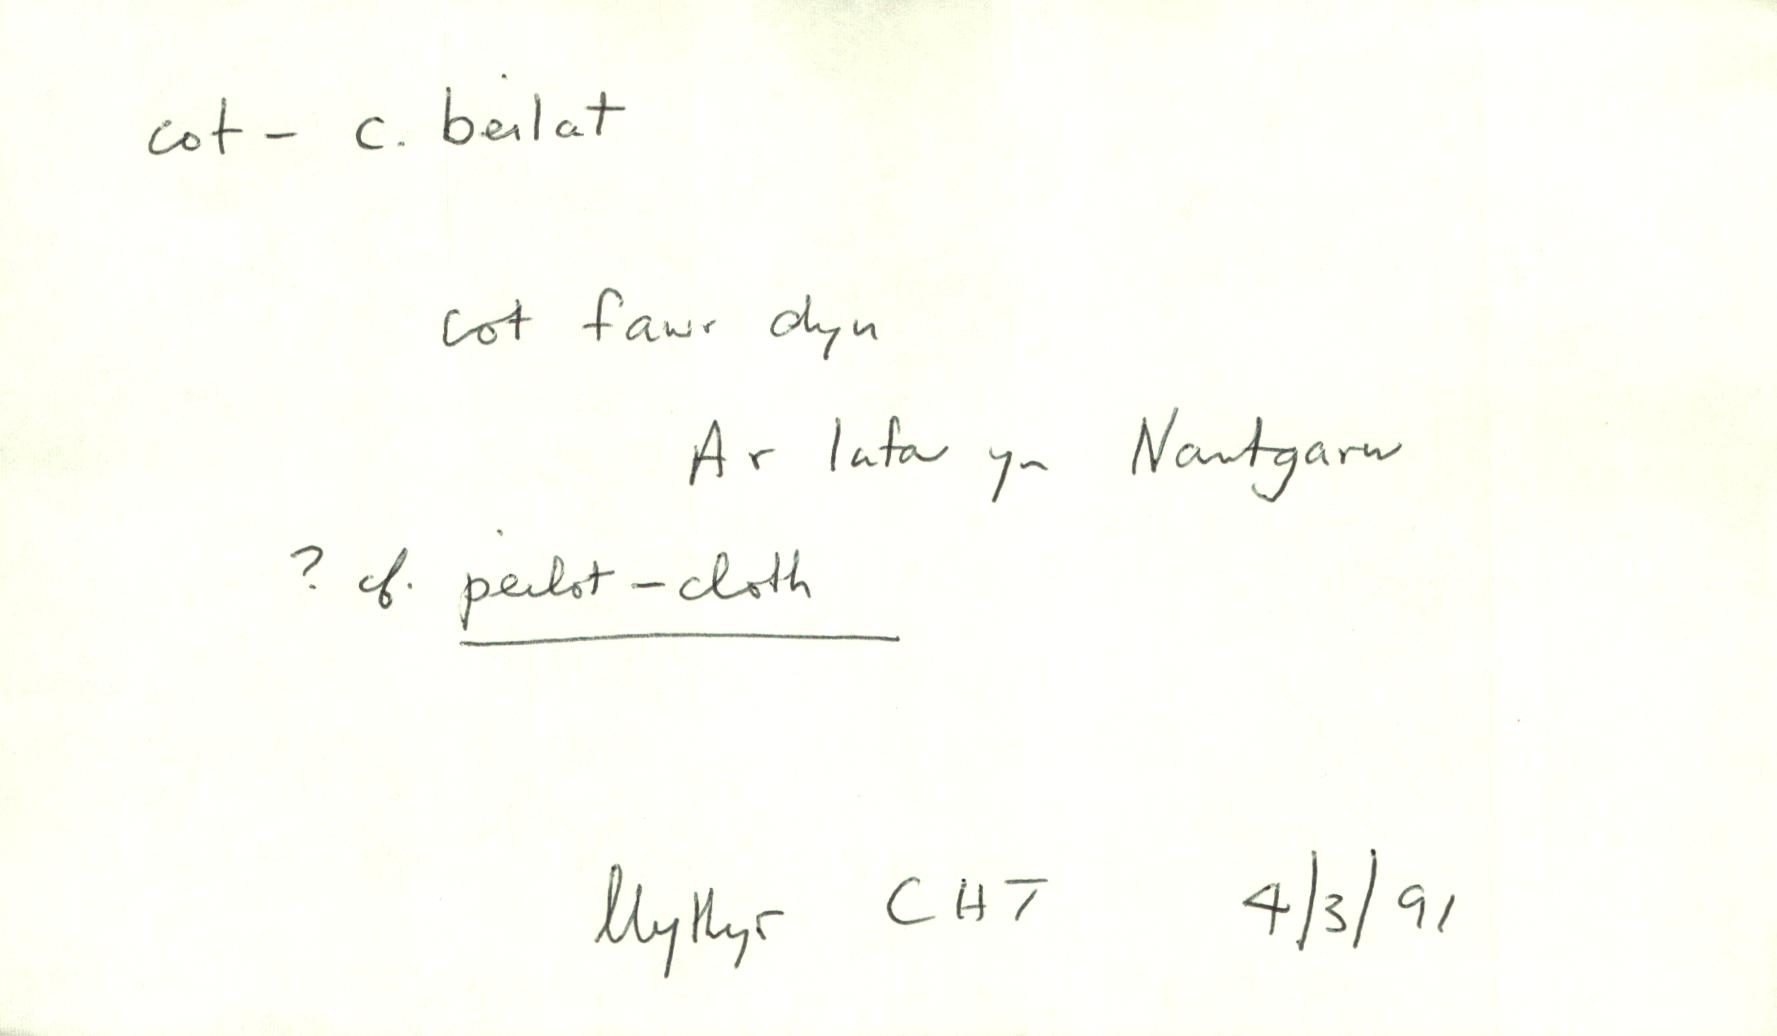 cot - c. beilat
cot fawr dyn
Ar lafar yn Nantgarw
? cf. peilot-cloth
llythyr CHT 4/3/91